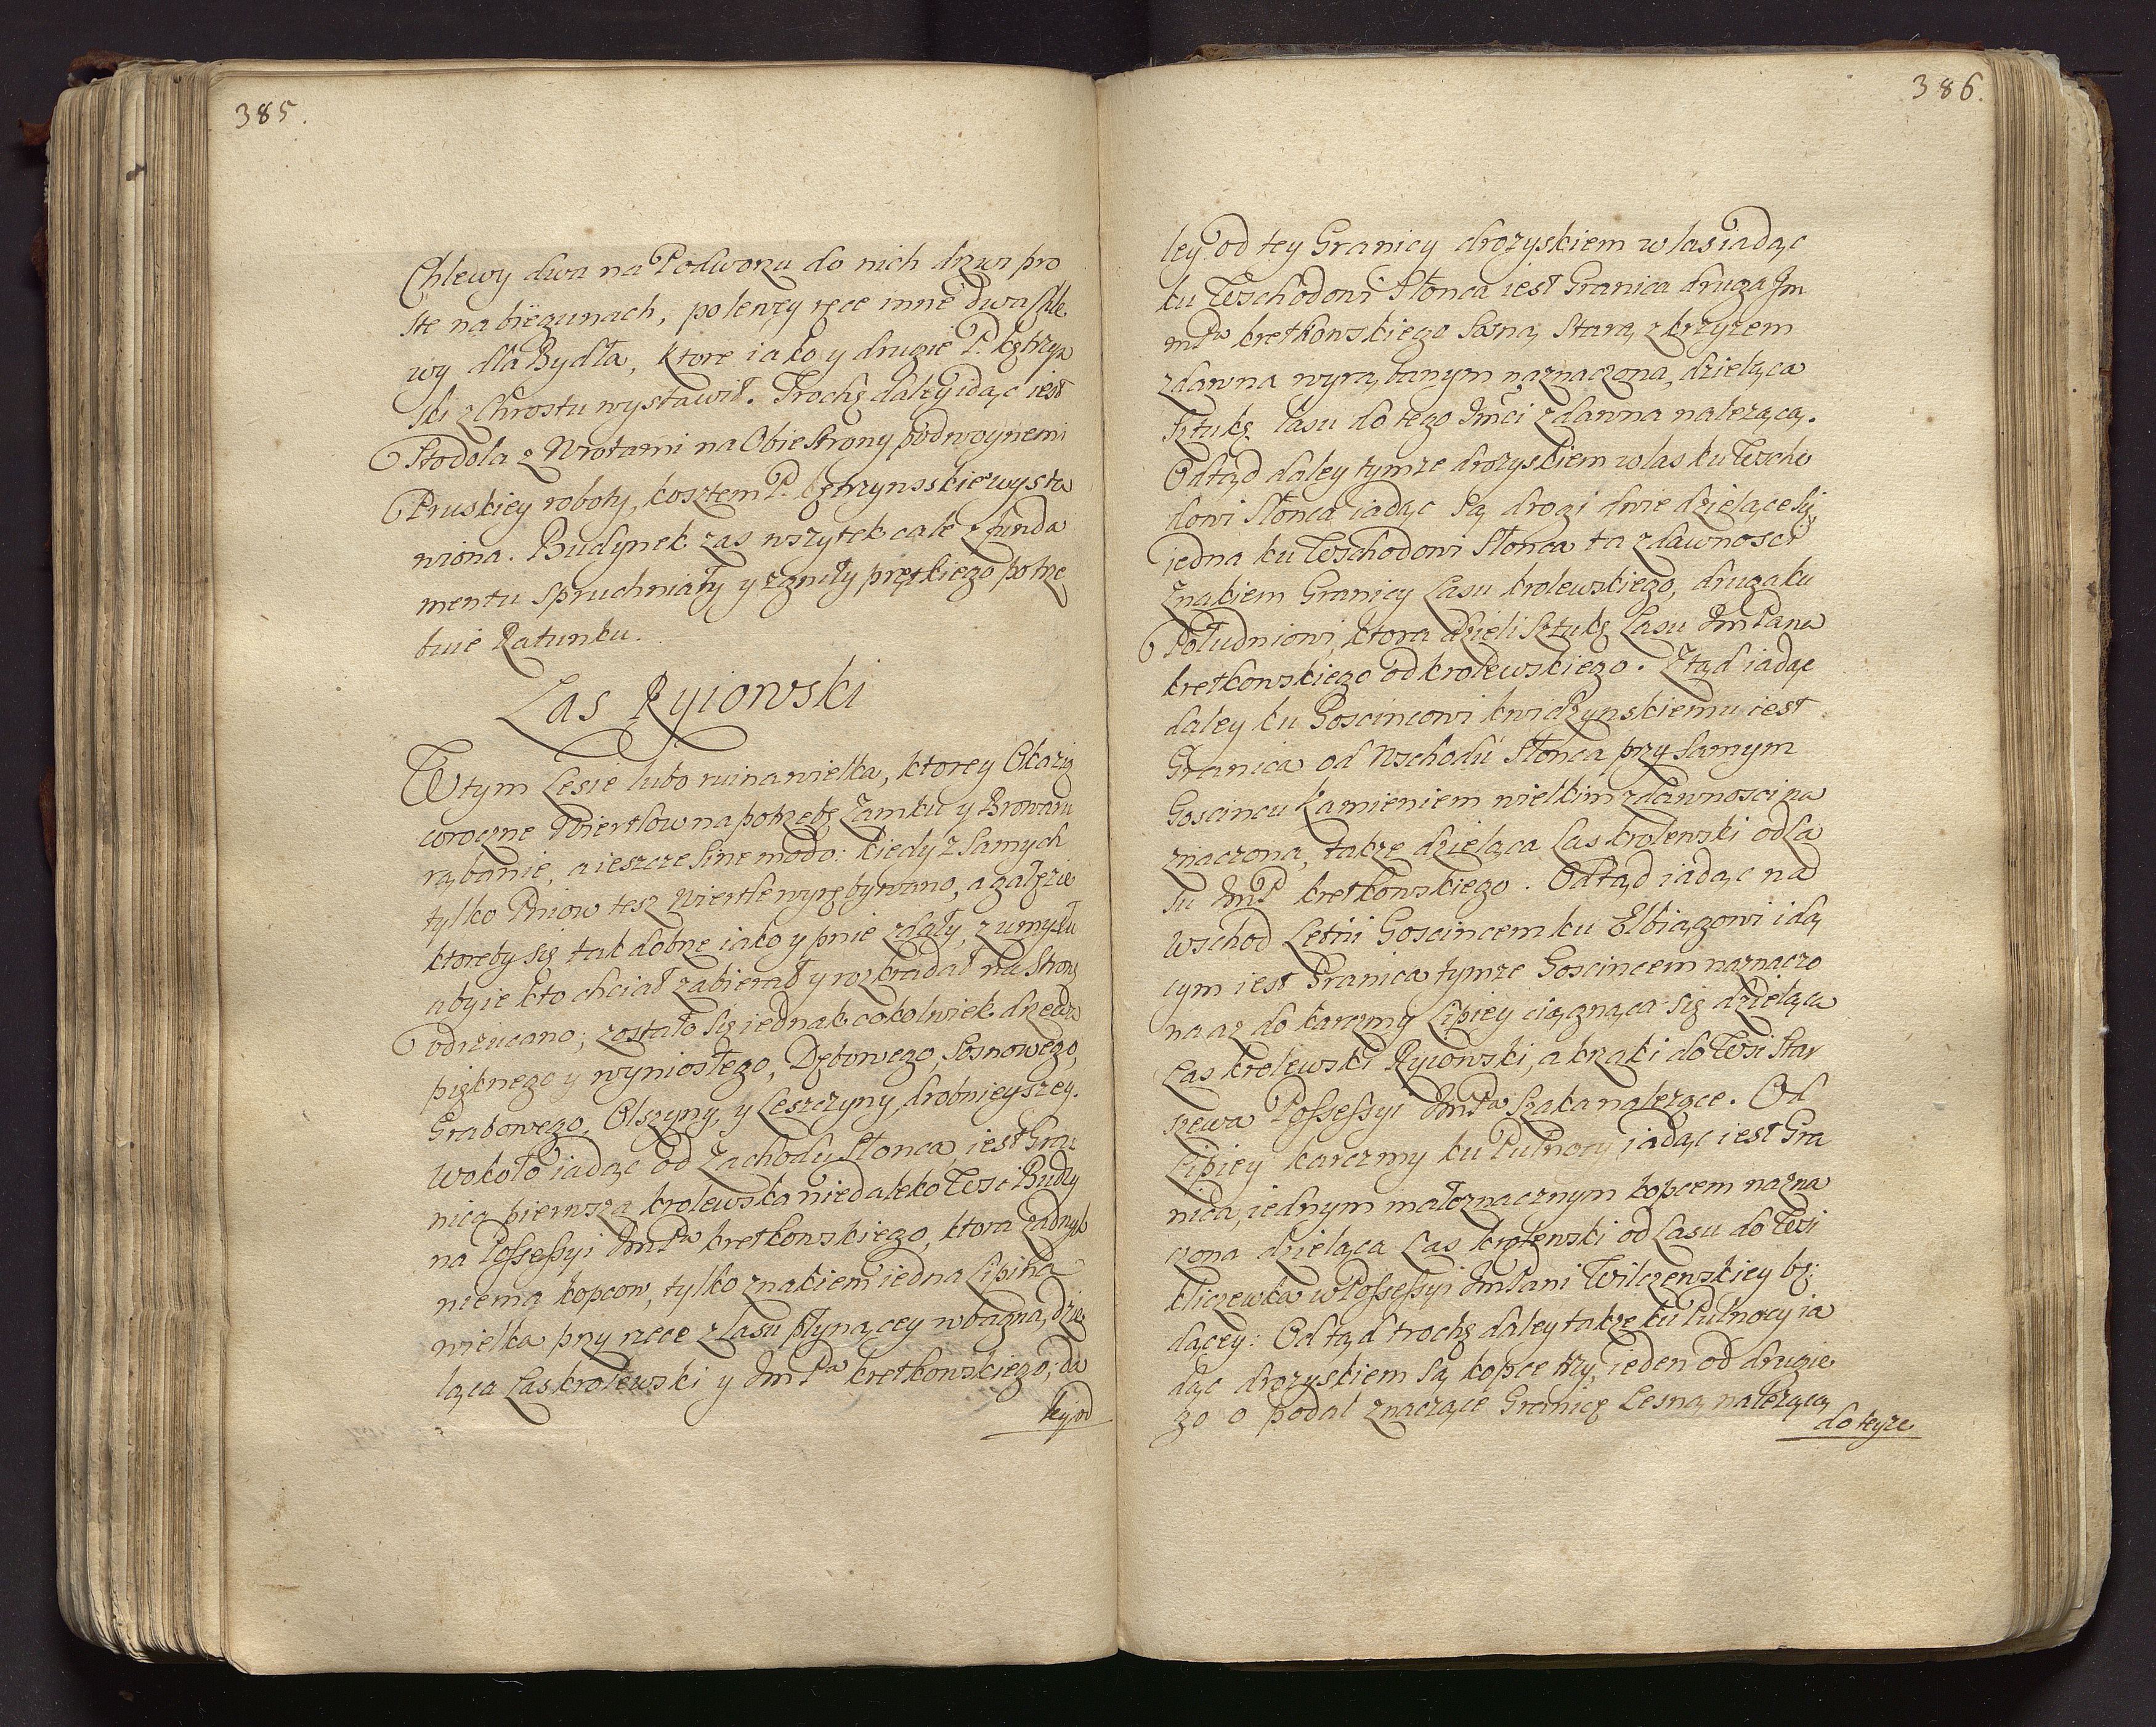 385.
Chlewy dwa na Podworzu do nich drzwi pro
ste na biegunach, po lewey ręce inne dwa Chle
wy dla Bydła, ktore iako y drugie P. Kętrzyn
ski z Chrostu wystawił. Trochę daley idąc iest
Stodoła z Wrotami na Obie Strony podwoynemi
Pruskiey roboty, kosztem P. Kętrzynsskie wysta
wiona. Budynek zas wszytek cale z funda
mentu spruchniały y zgniły prętkiego potrze
buie Ratunku.
Las Ryiowski
W tym Lesie lubo ruina wielka, ktorey Okazią
coroczne Wiertlow na potrzebę Zamku y Browaru
rąbanie, a ieszcze sine modo: kiedy z samych
tylko Pniow tesz Wiertle wyrębywano, a gałęzie
ktoreby się tak dobrze iako y pnie zdały, z umysłu
aby ie kto chciał zabierał y rozkradał na Stronę
odrzucano; zostało się iednak cokolwiek drzewa
pięknego y wyniosłego, Dębowego, Sosnowego,
Grabowego, Olszyny, y Leszczyny drobnieyszey.
Wokoło iadąc od Zachodu Słonca, iest Gra
nica pierwsza krolewska niedaleko Wsi Budzy
na Possessyi JmPa kretkowskiego, ktora żadnych
niema kopcow, tylko znakiem iedna Lipina
wielka przy rzece z Lasu płynącey w bagna, dzie
ląca Las krolewski y JmPa kretkowskiego; da
ley od
386.
ley od tey Granicy drozyskiem w las iadąc
ku Wschodowi Słonca iest Granica druga Jm
mPa kretkowskiego Sosną Starą z krzyzem
zdawna wyrąbanym naznaczona, dzieląca
Sztukę lasu do tego Jmci zdawna nalezącą.
Odtąd daley tymze drozyskiem w las ku Wscho
dowi Słonca iadąc są drogi dwie dzielące się
iedna ku Wschodowi Słonca ta zdawnosci
Znakiem Granicy Lasu krolewskiego, druga ku
Południowi, ktora dzieli Sztukę Lasu Jm Pana
kretkowskiego od krolewskiego. Ztąd iadąc
daley ku Goscincowi kwidzynskiemu iest
Granica od Wschodu Słonca przy samym
Goscincu kamieniem wielkim zdawnosci na
znaczona, także dzieląca Las krolewski od La
su JmP kretkowskiego. Odtąd iadąc nad
wschod Letni Goscincem ku Elbiągowi idą
cym iest Granica tymze Goscincem naznaczo
na az do karczmy Lipiey ciągnąca się dzieląca
Las krolewski Ryiowski, a krzaki do Wsi Star
szewa Possessyi JmPa Szaka nalezące. Od
Lipiey karczmy ku Pułnocy iadąc iest Gra
nica, iednym małoznacznym kopcem nazna
czona dzieląca Las krolewski od Lasu do Wsi
kliczewka w Possessyi Jm Pani Wilczewskiey bę:
dącey: Odtąd trochę daley takze ku Pułnocy ia
dąc drozyskiem są kopce trzy, ieden od drugie
go o podal znaczące Granicę Lesną nalezącą
do teyze